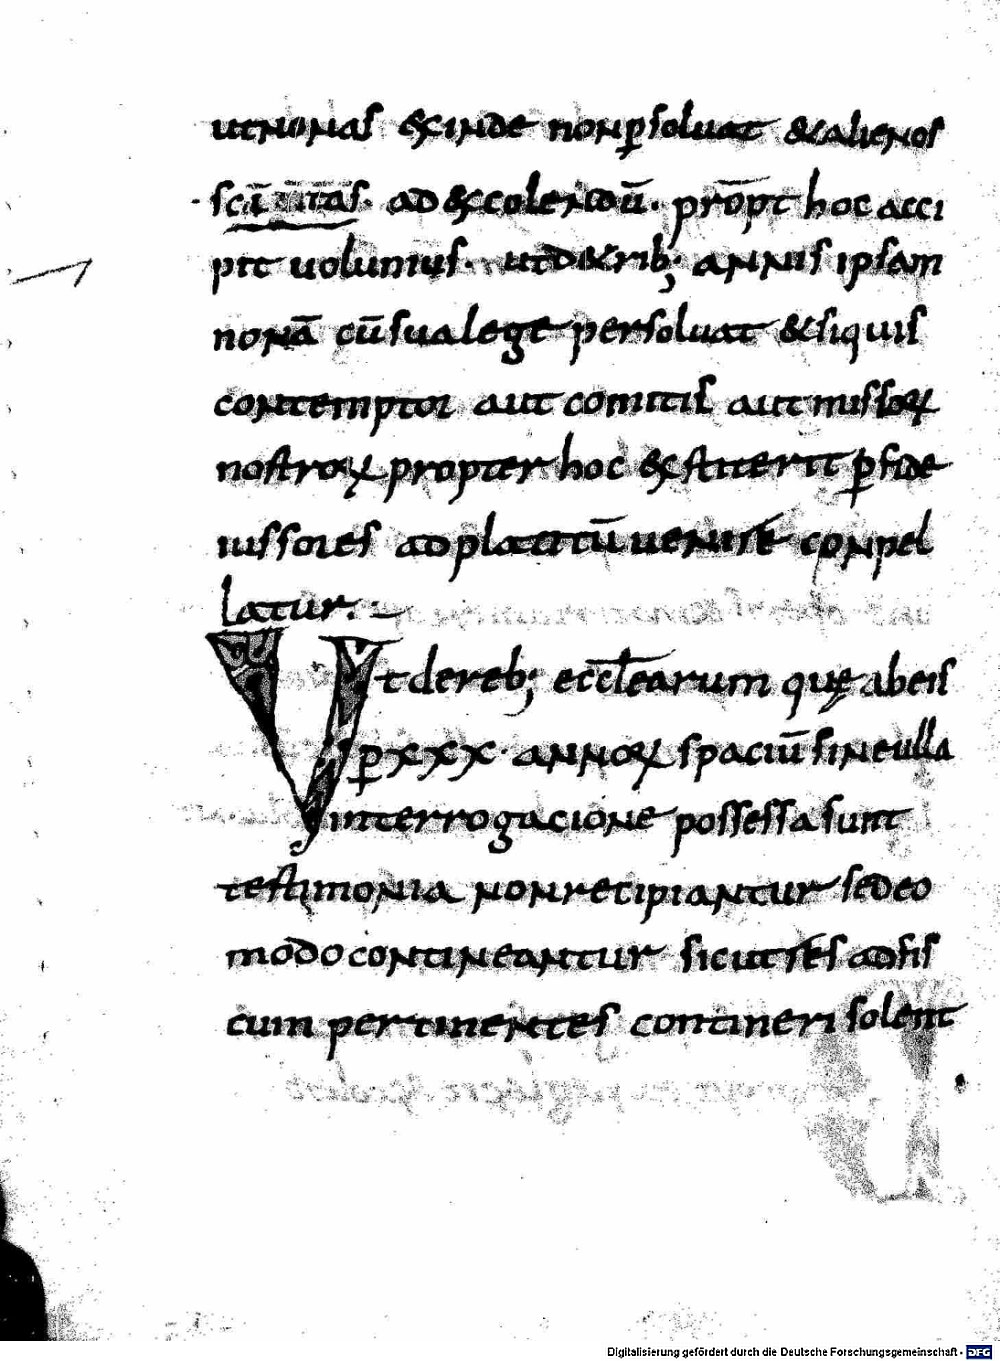 ut nonas & inde non ꝑsoluat & alienos
ad excolendū. prop̄t hoc acci
pit uolumus. ut de &rib; annis ipsam
nonā cū sua lege persoluat & siquis
contemptor aut comitis aut missoꝝ
nostroꝝ propter hoc exstiterit ꝑ fide
iussores ad placitū uenire conpel
latur.
Ut de reb; eccłearum quę ab eis
ꝑ xxx. annoꝝ spaciū sine ulla
interrogacione possessa sunt
testimonia non recipiantur sed eo
modo contineantur sicut res ad fis
cum pertinentes contineri solent
Digitalisierung gefördert durch die Deutsche Forschungsgemeinschaft - DFG